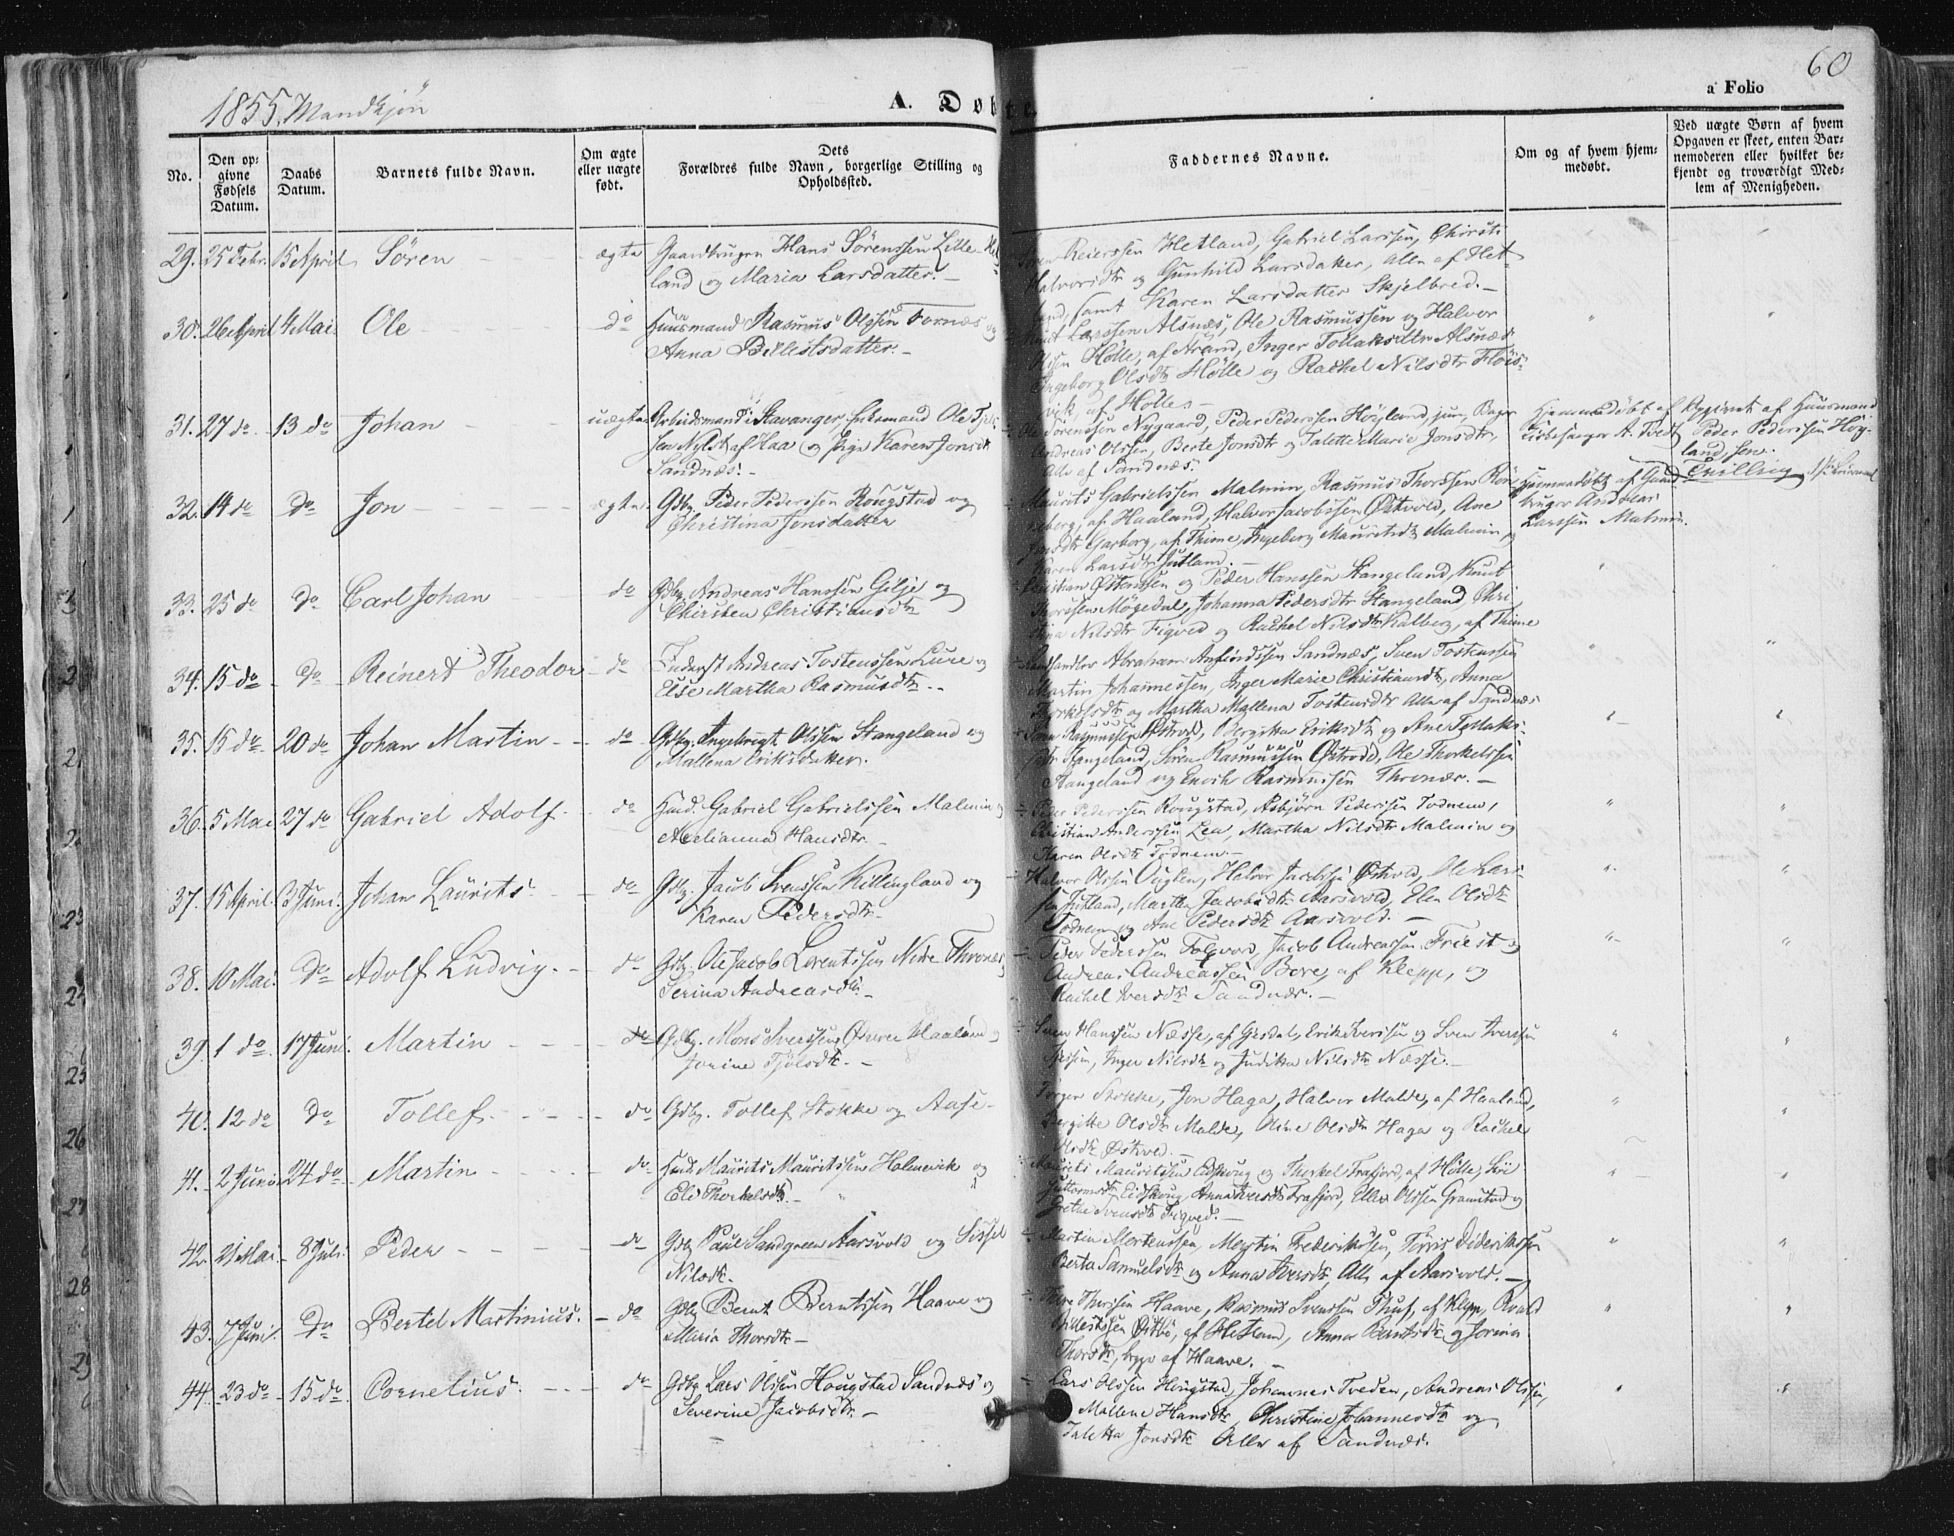 1855. Mandkjøn
A. Døbte.
a Folio
60
No.
Den opgivne Fødsels Datum.
Daabs Datum.
Barnets fulde Navn.
Om ægte eller uægte født.
Dets Forældres fulde Navn, borgerlige Stilling og Opholdssted.
Faddernes Navne.
Om og af hvem hjemmedøbt.
Ved uægte Børn af hvem Opgaven er skeet, enten Barnemoderen eller hvilket bekjendt og troværdigt Medlem af Menigheden.
29. 25 Febr. 15 April Søren - ægte Gaardbruger Hans Sørenssen Lille Het
land og Maria Larsdatter. -
Reierssen Hetland, Gabriel Larssen, Christi
Halvorsdtr og Gunhild Larsdatter, Alle af Het
land, samt Karen Larsdatter Skjelbred. -
30. 26 April 4 Mai Ole do Huusmand Rasmus Olssen Fornæs og
Anna Billestsdatter. -
Knut Larssen Alsnæs, Ole Rasmussen og Halvor
Olsen Hölle, af Strand, Inger Tollaksdtr Alsnæs
Ingeborg Olsdtr Hölle og Rachel Nilsdtr Fløis
vik af Hölle. -
31. 27 do 13 do Johan uægte Arbeidsmand i Stavanger, Enkemand Ole Tjel
sen Nylst af Haa og Pige Karen Jonsdtr
Sandnæs. -
Ole Sørenssen Nygaard, Peder Pederssen Höyland, jun, Bager
Andreas Olssen, Berte Jonsdtr og Talette Marie Jonsdtr,
Alle af Sandnæs.
Hjemmedøbt af
Kirkesanger A. Tvedt
Opgivet af Huusmand
Peder Pederssen Höy
land, sen.
32. 14 do do Jon ægte Gdbg. Peder Pederssen Rougstad og
Christina Jonsdatter
Maurits Gabrielssen Malmin, Rasmus Thorssen
af Haaland, Halvor Jacobssen Østvold, Ane
Jonsdtr Garborg, af Thime, Ingeborg Mauritsdtr Malmin,
Karen Larsdtr Jutland. -
Hjemmedøbt af Gaard
bruger Andreas
Larssen Malmin.
Tvilling
33. 25 do do Carl Johan do Gdbg Andreas Hanssen Gilje og
Chirsten Christiansdtr
Christian Østenssen og Peder Hanssen Stangeland, Knut
Thorssen Mögedal, Johanna Pedersdtr Stangeland, Chri
stina Nilsdtr Figved og Rachel Nilsdtr Kalberg, af Thime
34. 15 do do Reinert Theodor do Inderst Andreas Tostenssen Lure og
Else Martha Rasmusdtr. -
Landhandler Abraham Anfindssen Sandnæs, Sven Tostenssen
Martin Johannessen, Inger Marie Christiansdtr, Anna
og Martha Mallena Tostensdtr Alle af Sandnæs
35. 15 do 20 do Johan Martin do Gdbg. Ingebrigt Olssen Stangeland og
Mallena Eriksdatter.
Rasmussen Østrod, Bergitta Eriksdtr og Ane Tollaks
dtr Stangeland, Sören Rasmussen Østrod, Ole Thorkelssen
Stangeland og Enoch Rasmussen Thronæs. -
36. 5 Mai 27 do Gabriel Adolf do Huusd. Gabriel Gabrielssen Malmin og
Axelianna Hansdtr. -
Peder Pederssen Rougstad, Asbjörn Pederssen Todnem,
Christian Anderssen Lea, Martha Nilsdtr Malmin og
Karen Olsdtr Todnem. -
37. 15 April 3 Juni Johan Laurits do Gdbg. Jacob Svenssen Killingland og
Karen Pedersdtr. -
Halvor Olssen Ouglen, Halvor Jacobssen Østvold, Ole Lars
sen Jutland, Martha Jacobsdtr Aarsvold, Elen Olsdtr
Todnem og Ane Pedersdtr Aarsvold. -
38. 10 Mai do Adolf Ludvig. do Gdbg. Ole Jacob Lorentssen Nedre Thronæs
Serina Andreasdtr. -
Peder Pederssen Folgvor, Jacob Andreassen Friest og
Andreas Andreassen Bore, af Klepp, og
Rachel Iversdtr Sandnæs. -
39. 1 do 17 Juni Martin do Gdbg. Mons Iverssen Øvrer Haaland og
Jorine Tjölsdtr. -
Sven Hanssen Næsse, af Gjesdal, Erik Iverssen og Sven Iverssen
Inger Nilsdtr og Judikta Nilsdtr Næsse. -
40. 12 do do Tollef do Gdbg. Tollef Stokke og Aase -
Törger Stokke, Jon Haga, Halvor Malde, af Haaland,
Bergitte Olsdtr Malde, Oline Olsdtr Haga og Rachel
Olsdtr Østvod. -
41. 2 Juni 24 do Martin do Huusd. Maurits Mauritssen Holmevik og
Eli Thorkelsdtr. -
Maurits Mauritssen Eidskoug og Thorkel Frafjord, af Hölle, Siri
Guttormsdtr Eidskoug, Anna Iversdtr Frafjord, Elles Olssen Gramstad og
Grethe Svensdtr Figved. -
42. 21 Mai 8 Juli Peder do Gdbg Paul Sandgreen Aarsvold og Sissel
Nilsdtr.
Martin Mortenssen, Morten Frederikssen, Törris Dideriksssen
Berta Samuelsdtr og Anna Iversdtr, Alle af Aarsvold. -
43. 7 Juni do Bertel Martinius. do Gdbg Bernt Berntssen Haave og
Maria Thorsdtr -
Thore Thorssen Haave, Rasmus Svenssen Thuf, af Klepp, Roald
Billestssen Østbö, af Hetland, Anna Berntsdtr og Jorina
Thorsdtr, begge af Haave. -
44. 23 do 15 do Cornelius. do Gdbg Lars Olssen Hougstad Sandnæs og
Severine Jacobsdtr. -
Lars Olssen Hougstad, Johannes Tveden, Andreas Olssen,
Mallene Hansdtr, Christine Johannesdtr og
Taletta Jonsdtr Alle af Sandnæs.